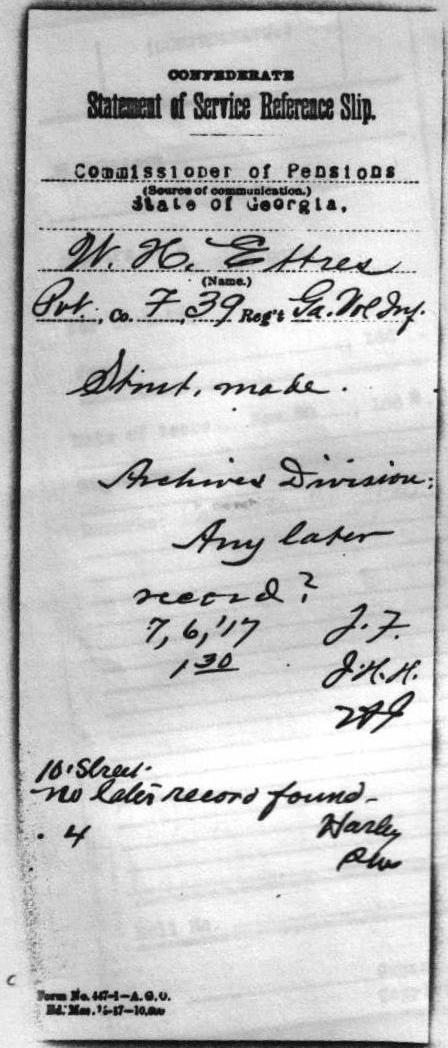 CONFEDERATE
Statement of Service Reference Slip.
Commissioner of Pensions
(Source of communication.)
State of Georgia.
W. H. Ettres
(Name.)
Pvt., Co. 7, 39 Reg't Ga. Vol Inf.
Stmt. made.
Archives Division:
Any later
record?
7, 6, '17 J. F.
1 30 J. H. H.
10. Street.
no later record found -
. 4 Harley
Form No. 447-1—A. G. O.